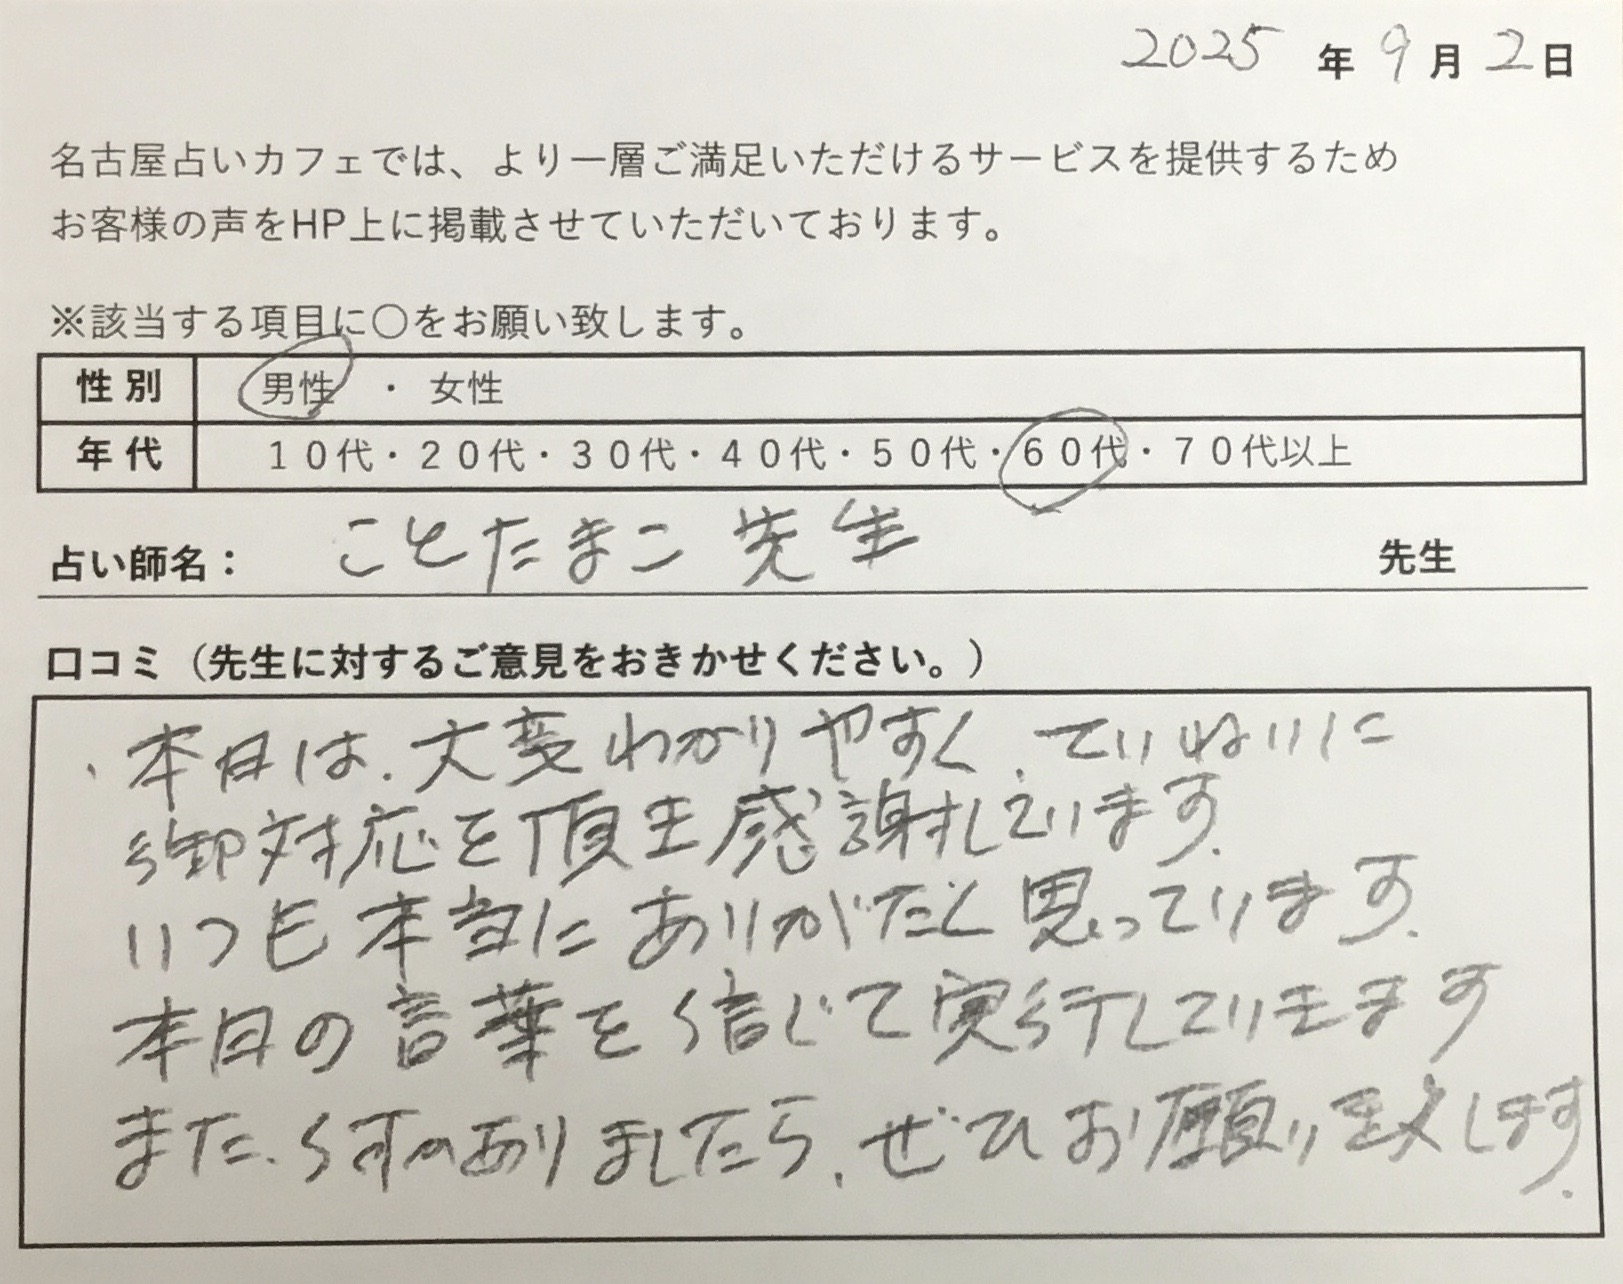 2025 年 9 月 2 日
名古屋占いカフェでは、より一層ご満足いただけるサービスを提供するため
お客様の声をHP上に掲載させていただいております。
※該当する項目に〇をお願い致します。
性別 男性 ・ 女性
年代 10代・20代・30代・40代・50代・60代・70代以上
占い師名： ことたまこ 先生 先生
口コミ（先生に対するご意見をおきかせください。）
、本日は、大変わかりやすく、ていねいに
御対応を頂き感謝しています。
いつも本当にありがたく思っています。
本日の言葉を信じて実行していきます
また、ありましたら、ぜひお願い致します。